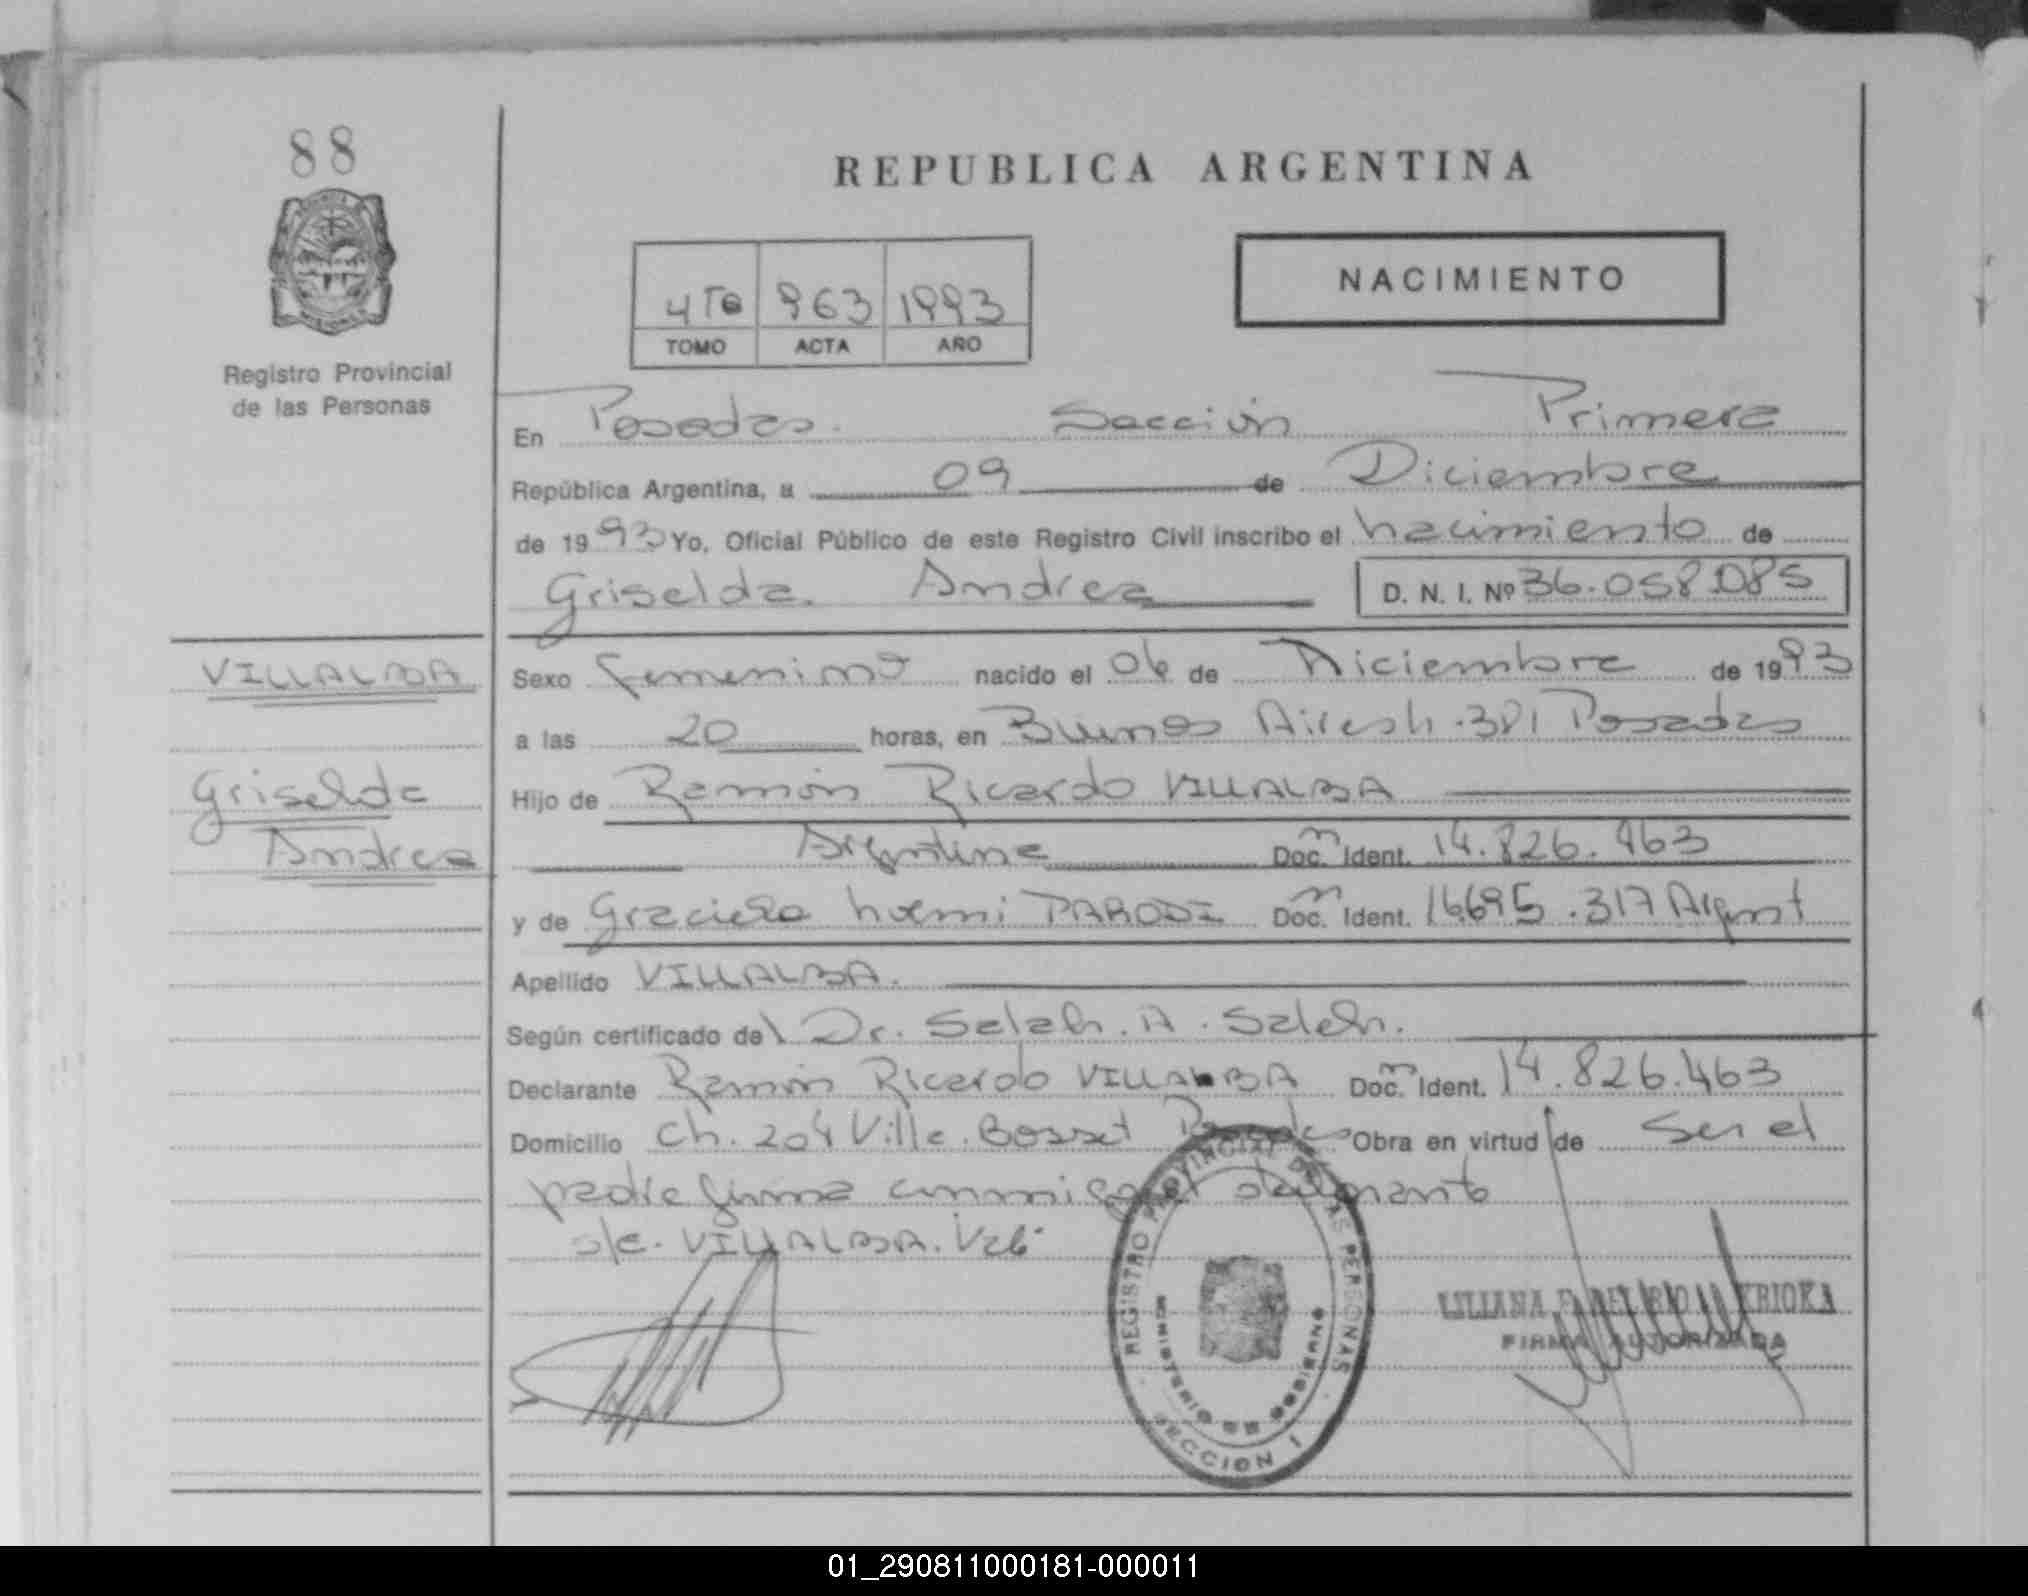 88
REPUBLICA ARGENTINA
NACIMIENTO
4To 963 1993
TOMO ACTA AÑO
Registro Provincial
de las Personas
En Posadas. Sección Primera
República Argentina, a 09 de Diciembre
de 1993 Yo, Oficial Público de este Registro Civil inscribo el nacimiento de
Griselda. Andrea D. N. I. Nº 36.058.085
VILLALBA
Sexo femenino nacido el 06 de Diciembre de 1993
a las 20 horas, en Buenos Aires 381 Posadas
Griselda
Hijo de Ramón Ricardo VILLALBA
Andrea
Argentina Doc. Ident. 14.826.463
y de Graciela Noemi PARODI Doc. Ident. 16.695.317 Argent
Apellido VILLALBA.
Según certificado del Dr. Saleh. A. Saleh.
Declarante Ramón Ricardo VILLALBA Doc. Ident. 14.826.463
Domicilio Ch. 204 Villa. Bosset Posadas Obra en virtud de Ser el
padre firma conmigo el declarante
s/c. VILLALBA. Vale
REGISTRO PROVINCIAL DE LAS PERSONAS
MINISTERIO DE GOBIERNO
SECCION 1
LILIANA DEL RIO
FIRMA AUTORIZADA
01_290811000181-000011